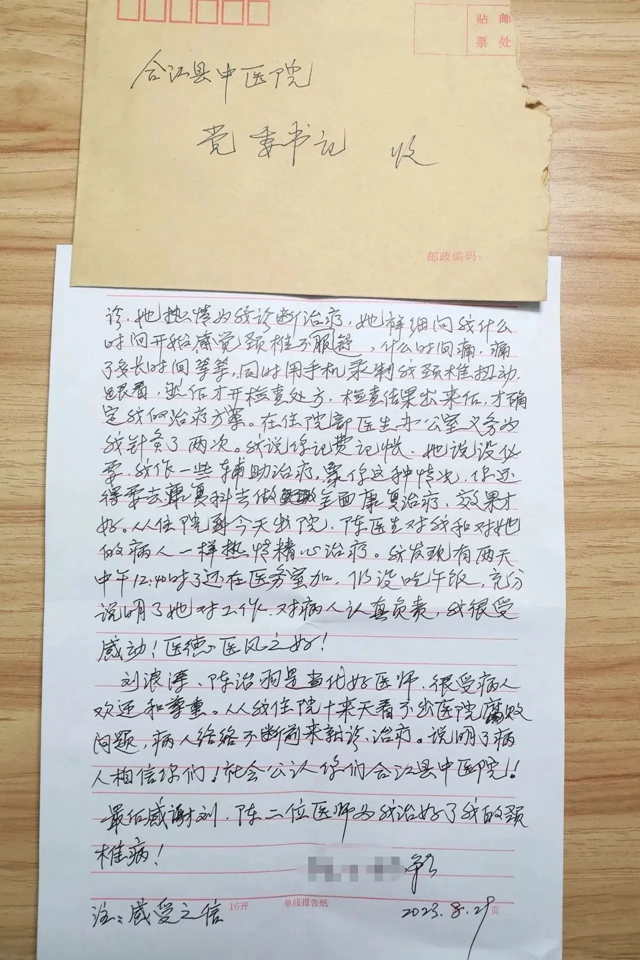 贴 邮
票 处
合江县中医院
党委书记 收
邮政编码:
诊,她热情为我诊断治疗,她详细问我什么
时间开始感觉颈椎不服舒,什么时间痛,痛
了多长时间等等,同时用手机录制我颈椎扭动
看,然后才开检查处方,检查结果出来后,才确
定我的治疗方案。在住院部医生办公室又为
我针灸了两次。我说你记费记帐,她说没必
要,我作一些辅助治疗,象你这种情况,你还
得要去康复科去做全面康复治疗,效果才
好。从住院到今天出院,陈医生对我和对她
的病人一样热情精心治疗。我发现有两天
中午12:40时了还在医务室加,仍没吃午饭,充分
说明了她对工作、对病人认真负责,我很受
感动!医德、医风之好!
刘浪涛、陈治羽是当代好医师,很受病人
欢迎和尊重。从我住院十来天看不出医院腐败
问题,病人络络不断前来就诊、治疗。说明了病
人相信你们!社会公认你们合江县中医院!!
最后感谢刘、陈二位医师为我治好了我的颈
椎病!
注:感受之信
16开 单线报告纸 2023.8.29 页